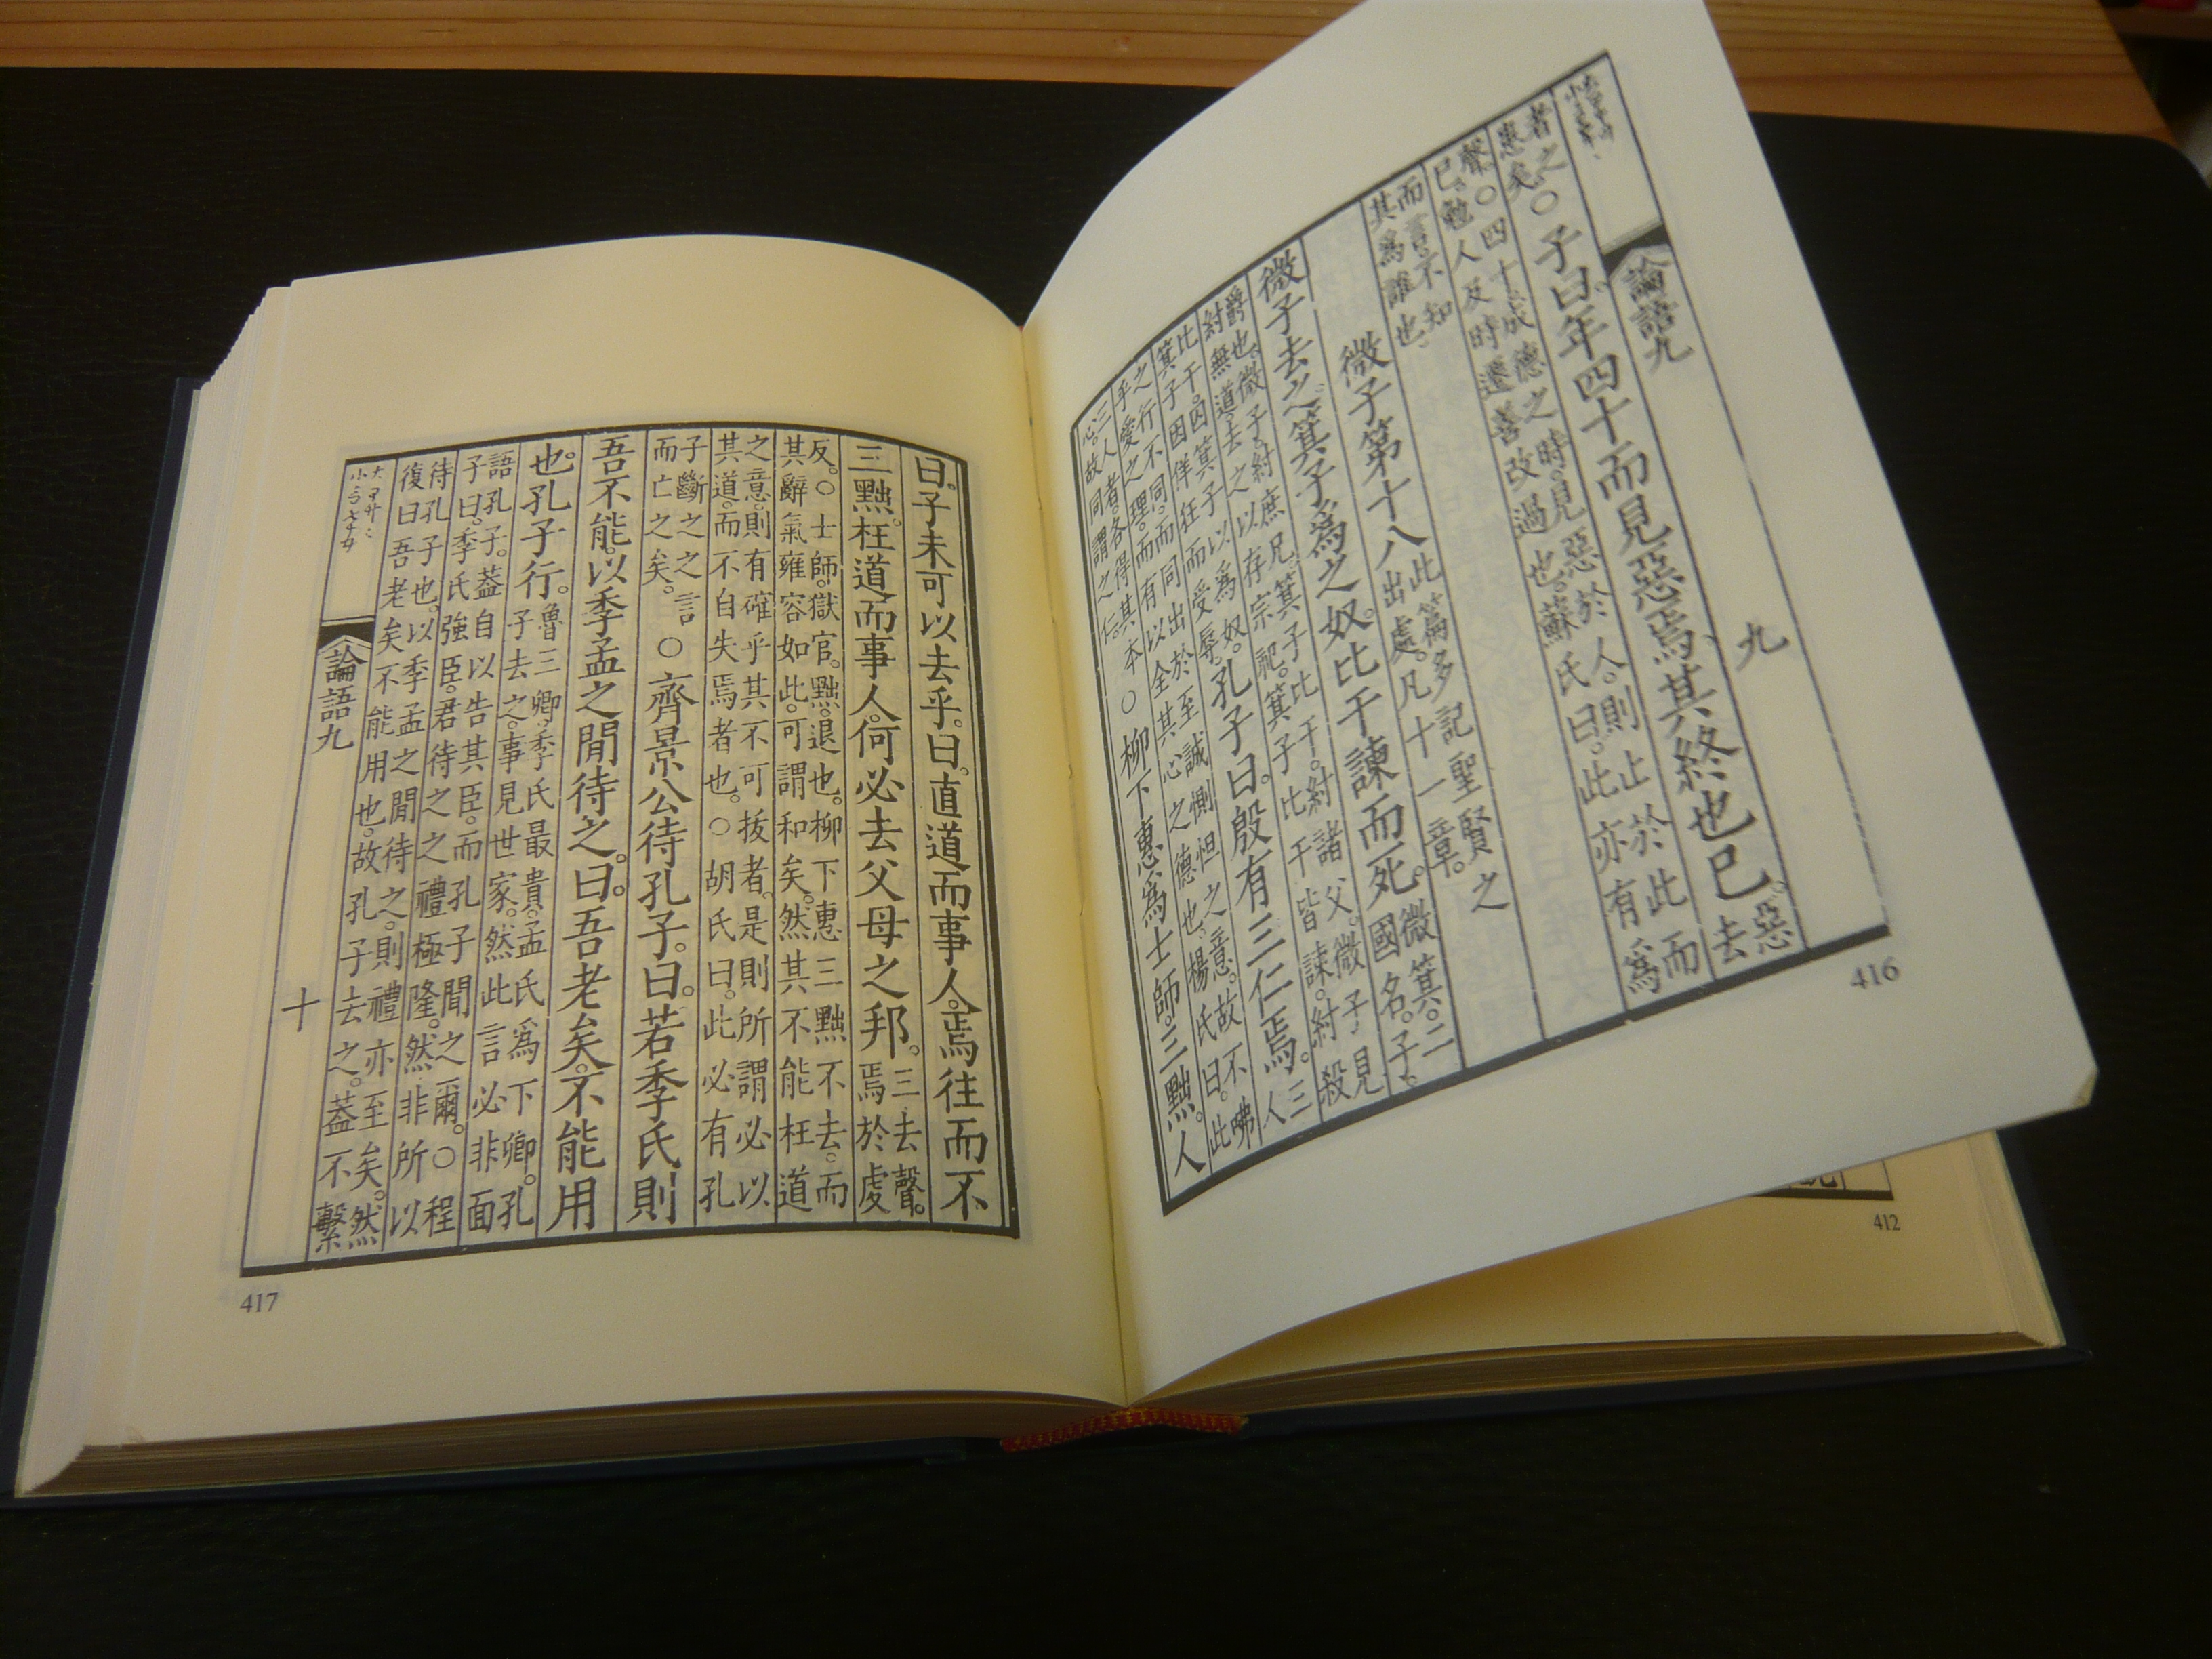 論語九
九
者之
患矣。
○子曰。年四十而見惡焉。其終也已。
惡
去
聲。○四十成德之時。見惡於人。則止於此而
已。勉人及時遷善改過也。蘇氏曰。此亦有爲
而言。不知
其爲誰也。
微子第十八
此篇多記聖賢之
出處。凡十一章。
微子去之。箕子爲之奴。比干諫而死。
微箕。二
國名。子。
爵也。微子。紂庶兄。箕子比干。紂諸父。微子見
紂無道。去之以存宗祀。箕子比干皆諫。紂殺
比干。囚箕子以爲奴。
箕子因佯狂而受辱。
孔子曰。殷有三仁焉。
三
人
之行不同。而同出於至誠惻怛之意。故不咈
乎愛之理。而有以全其心之德也。楊氏曰。此
三人者。各得其本
心。故同謂之仁。
○柳下惠爲士師。三黜。人
416
412
曰。子未可以去乎。曰。直道而事人。焉往而不
三黜。枉道而事人。何必去父母之邦。
三。去聲。
焉。於虔
反。○士師。獄官。黜。退也。柳下惠三黜不去。而
其辭氣雍容如此。可謂和矣。然其不能枉道
之意。則有確乎其不可拔者。是則所謂必以
其道。而不自失焉者也。○胡氏曰。此必有孔
子斷之之言
而亡之矣。
○齊景公待孔子。曰。若季氏則
吾不能。以季孟之閒待之。曰。吾老矣。不能用
也。孔子行。
魯三卿。季氏最貴。孟氏爲下卿。孔
子去之。事見世家。然此言必非面
語孔子。蓋自以告其臣。而孔子聞之爾。○程
子曰。季氏強臣。君待之之禮極隆。然非所以
待孔子也。以季孟之閒待之。則禮亦至矣。然
復曰吾老矣不能用也。故孔子去之。蓋不繫
論語九
十
417